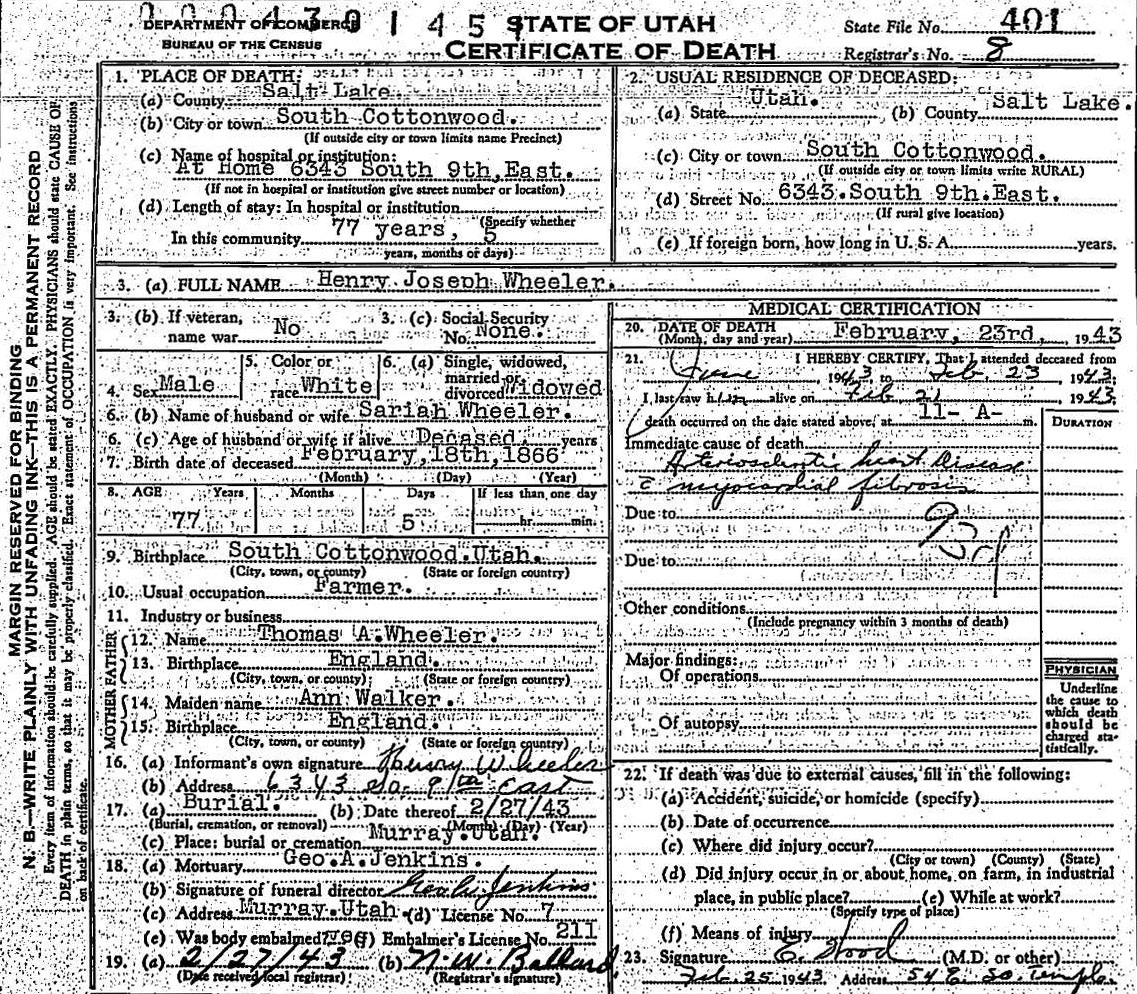 000430145
DEPARTMENT OF COMMERCE
BUREAU OF THE CENSUS
STATE OF UTAH
CERTIFICATE OF DEATH
State File No. 401
Registrar's No. 8
MARGIN RESERVED FOR BINDING
N. B.—WRITE PLAINLY WITH UNFADING INK—THIS IS A PERMANENT RECORD
Every item of information should be carefully supplied. AGE should be stated EXACTLY. PHYSICIANS should state CAUSE OF
DEATH in plain terms, so that it may be properly classified. Exact statement of OCCUPATION is very important. See instructions
on back of certificate.
1. PLACE OF DEATH:
(a) County Salt Lake.
(b) City or town South Cottonwood.
(If outside city or town limits name Precinct)
(c) Name of hospital or institution:
At Home 6343 South 9th, East.
(If not in hospital or institution give street number or location)
(d) Length of stay: In hospital or institution
(Specify whether
In this community 77 years, 5
years, months or days)
2. USUAL RESIDENCE OF DECEASED:
(a) State Utah. (b) County Salt Lake.
(c) City or town South Cottonwood.
(If outside city or town limits write RURAL)
(d) Street No. 6343.South 9th.East.
(If rural give location)
(e) If foreign born, how long in U. S. A. years.
3. (a) FULL NAME Henry Joseph Wheeler.
3. (b) If veteran,
name war No
3. (c) Social Security
No. None.
4. Sex Male
5. Color or
race White
6. (a) Single, widowed,
married or
divorced Widowed
6. (b) Name of husband or wife Sariah Wheeler.
6. (c) Age of husband or wife if alive Decased. years
7. Birth date of deceased February, 18th, 1866
(Month) (Day) (Year)
8. AGE Years Months Days If less than one day
77 5 hr. min.
9. Birthplace South Cottonwood.Utah.
(City, town, or county) (State or foreign country)
10. Usual occupation Farmer.
11. Industry or business
FATHER
12. Name Thomas A.Wheeler.
13. Birthplace England.
(City, town, or county) (State or foreign country)
MOTHER
14. Maiden name Ann Walker.
15. Birthplace England.
(City, town, or county) (State or foreign country)
16. (a) Informant's own signature Henry Wheeler
(b) Address 6343 So. 9th East
17. (a) Burial. (b) Date thereof 2/27/43
(Burial, cremation, or removal) (Month) (Day) (Year)
(c) Place: burial or cremation Murray.Utah.
18. (a) Mortuary Geo.A.Jenkins.
(b) Signature of funeral director Geo. A. Jenkins
(c) Address Murray.Utah (d) License No. 7
(e) Was body embalmed? Yes (f) Embalmer's License No. 211
19. (a) 2/27/43 (b) N. W. Ballard
(Date received local registrar) (Registrar's signature)
MEDICAL CERTIFICATION
20. DATE OF DEATH
(Month, day and year) February, 23rd, 1943
21. I HEREBY CERTIFY, That I attended deceased from
June 1943 to Feb. 23, 1943.
I last saw him alive on Feb 21 1943.
death occurred on the date stated above, at 11- A- m.
DURATION
Immediate cause of death
Arteriosclerotic heart Disease
c myocardial fibrosis
Due to
Due to
Other conditions
(Include pregnancy within 3 months of death)
Major findings:
Of operations
Of autopsy
PHYSICIAN
Underline
the cause to
which death
should be
charged sta-
tistically.
22. If death was due to external causes, fill in the following:
(a) Accident, suicide, or homicide (specify)
(b) Date of occurrence
(c) Where did injury occur?
(City or town) (County) (State)
(d) Did injury occur in or about home, on farm, in industrial
place, in public place? (e) While at work?
(Specify type of place)
(f) Means of injury
23. Signature E. Wood (M.D. or other)
Feb. 25 1943 Address 54 E. So. Temple